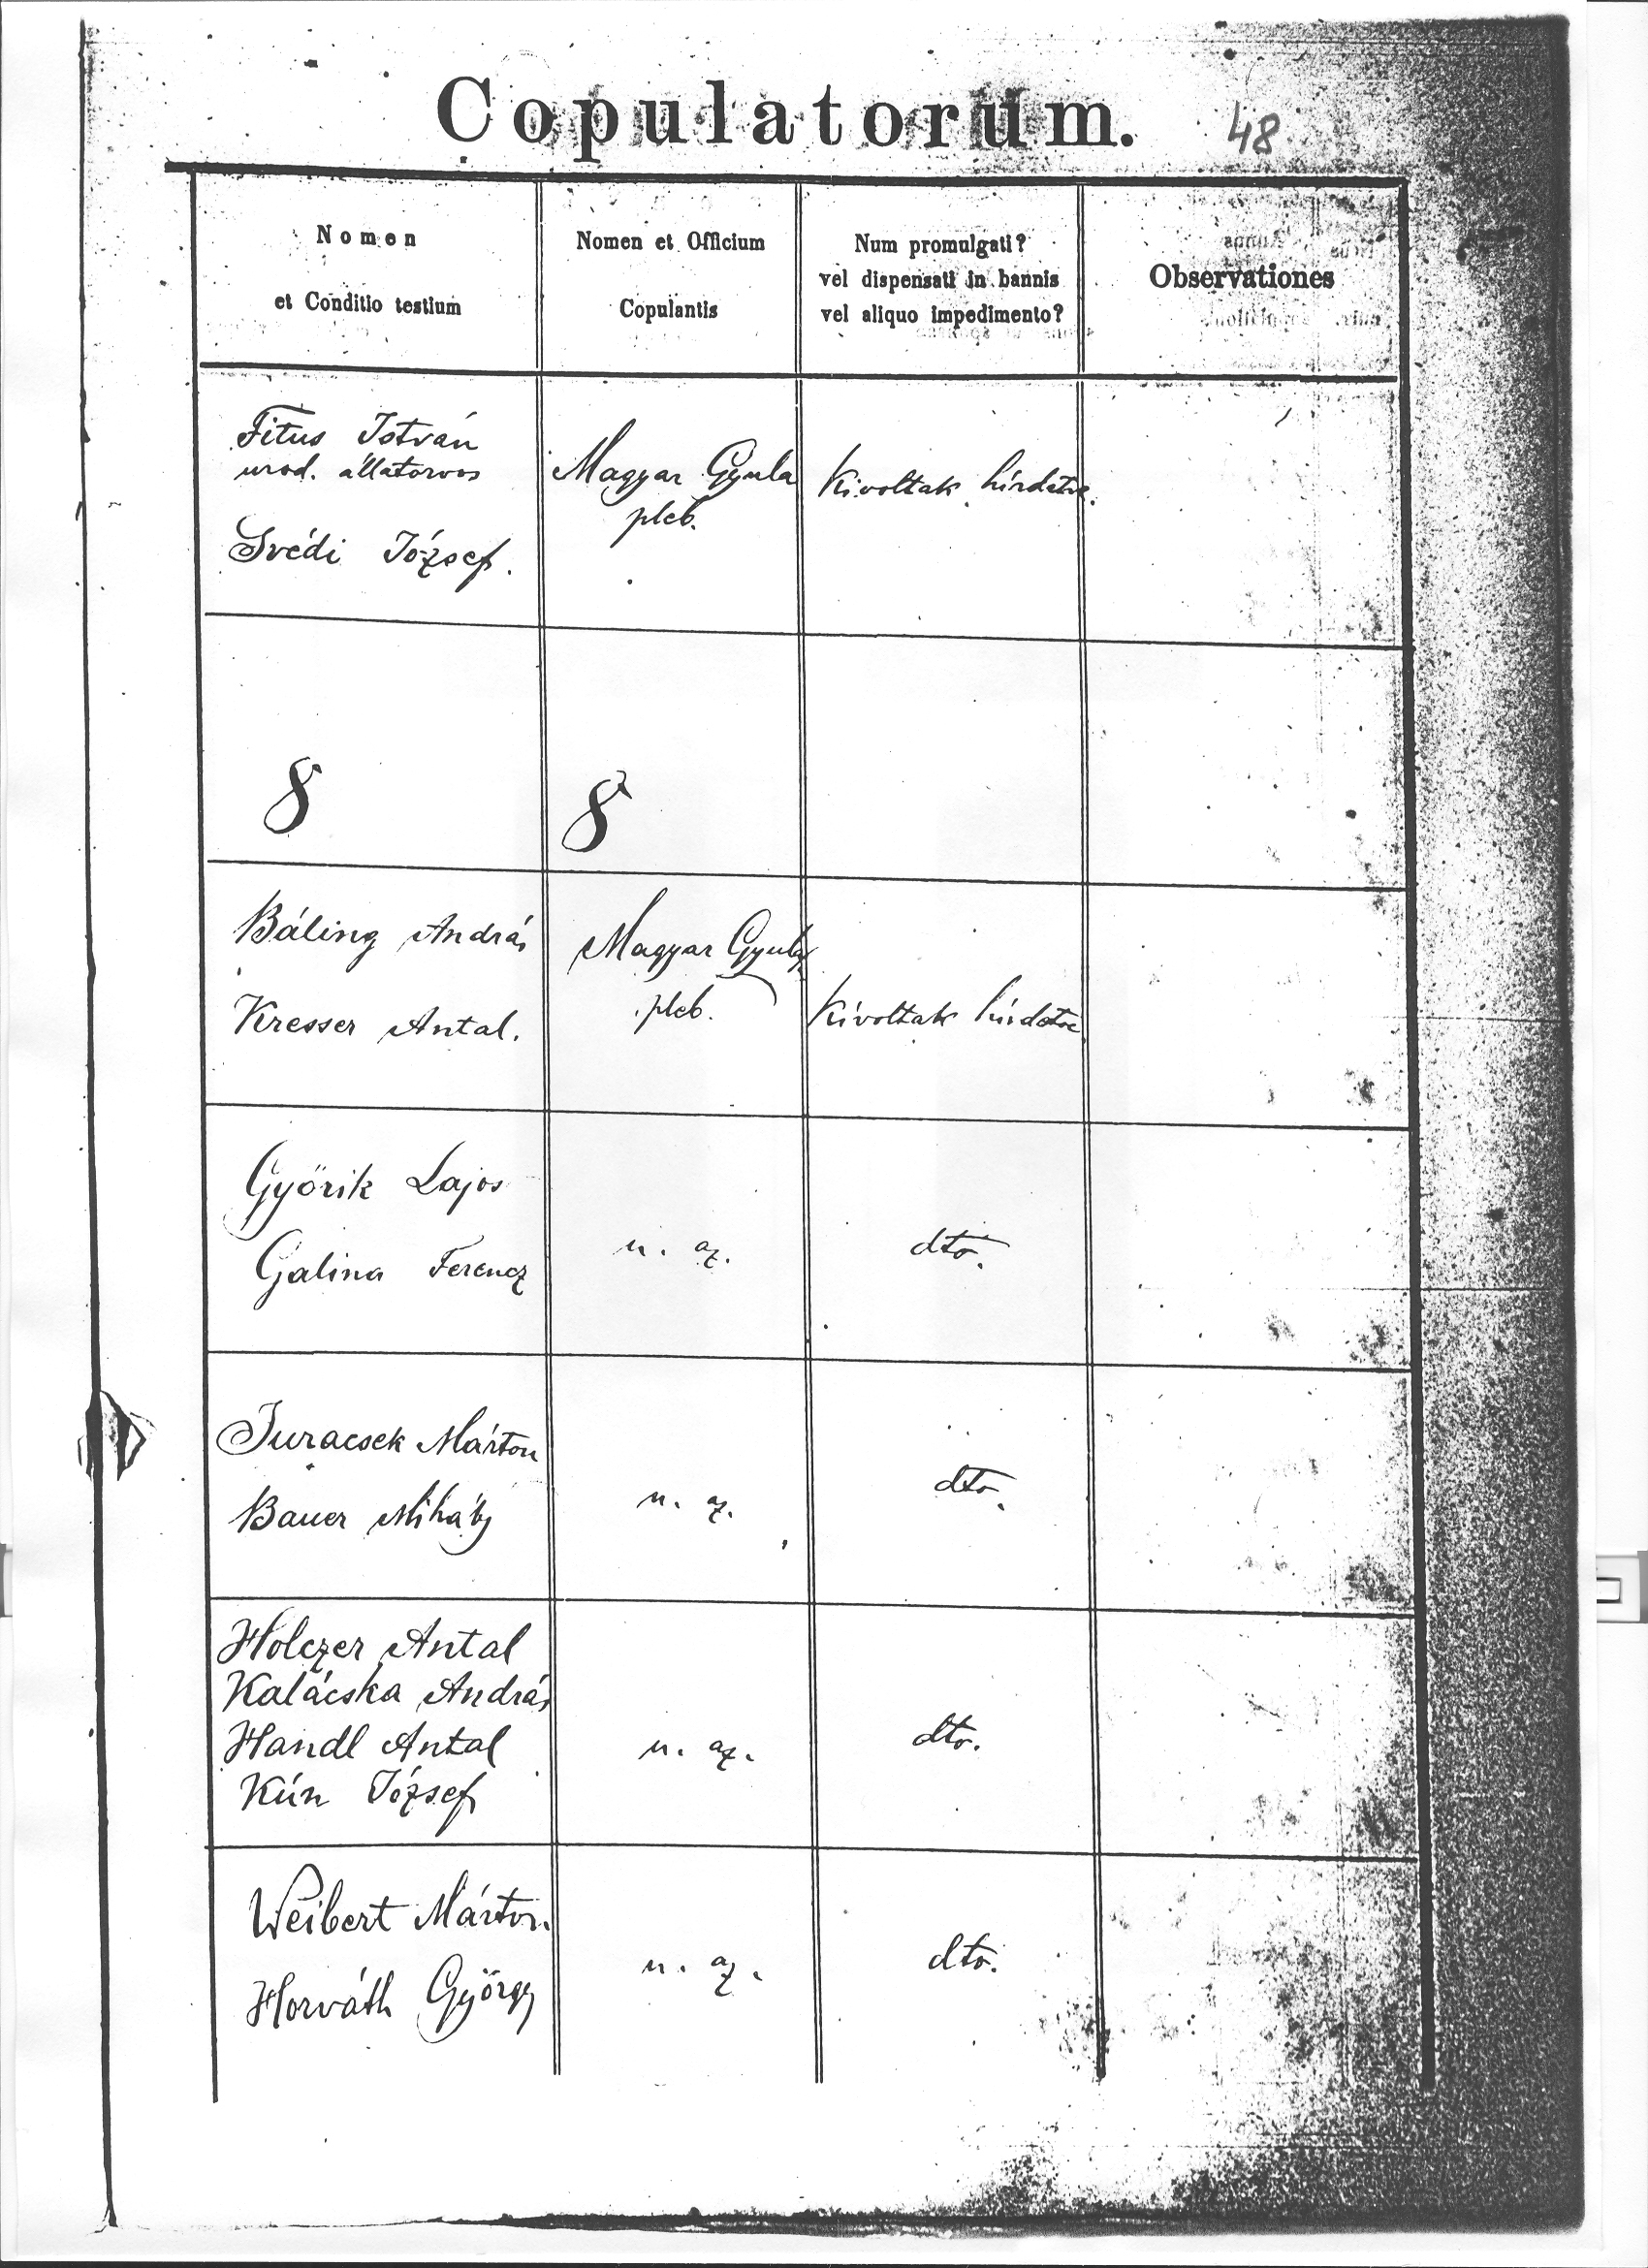 Copulatorum.
48
Nomen
et Conditio testium
Nomen et Officium
Copulantis
Num promulgati?
vel dispensati in bannis
vel aliquo impedimento?
Observationes
Titus István
urod. állatorvos
Svédi József.
Magyar Gyula
pleb.
Kivoltak hirdetve.
8
8
Báling András
Kresser Antal.
Magyar Gyula
pleb.
Kivoltak hirdetve
Győrik Lajos
Galina Ferencz
u. az.
dto.
Juracsek Márton
Bauer Mihály
u. az.
dto.
Holczer Antal
Kalácska András
Handl Antal
Kún József
u. az.
dto.
Weibert Márton.
Horváth György
u. az.
dto.